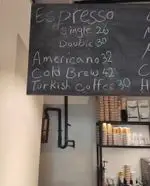 Espresso
Single 26
Double 30
Americano 32
Cold Brew 42
Turkish Coffee 30